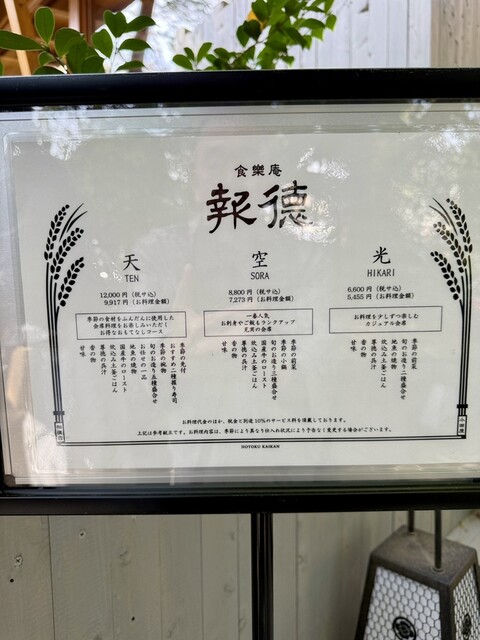 食樂庵
報徳
天
TEN
12,000円(税サ込)
9,917円(お料理金額)
季節の食材をふんだんに使用した
会席料理をお楽しみいただく
お得なおもてなしコース
季節の先付
おすすめ二種握り寿司
季節の椀物
旬のお造り五種盛合せ
お任せの一品
地魚の焼物
国産牛のロースト
炊込み土釜ごはん
尊徳の呉汁
香の物
甘味
空
SORA
8,800円(税サ込)
7,273円(お料理金額)
一番人気
お刺身やご飯もランクアップ
充実の会席
季節の前菜
季節の小鍋
旬のお造り三種盛合せ
国産牛のロースト
炊込み土釜ごはん
尊徳の呉汁
香の物
甘味
光
HIKARI
6,600円(税サ込)
5,455円(お料理金額)
お料理を少しずつ楽しむ
カジュアル会席
季節の前菜
旬のお造り二種盛合せ
地魚の焼物
炊込み土釜ごはん
尊徳の呉汁
香の物
甘味
お料理代金のほか、税金と別途10%のサービス料を頂戴しております。
上記は参考献立です。お料理内容は、季節により異なり仕入れ状況により予告なく変更する場合がございます。
HOTOKU KAIKAN